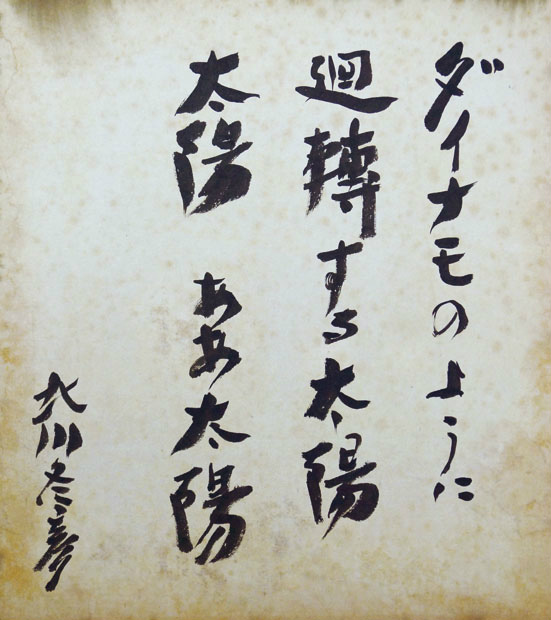 ダイナモのように
廻轉する太陽
太陽　ああ太陽
北川冬彦